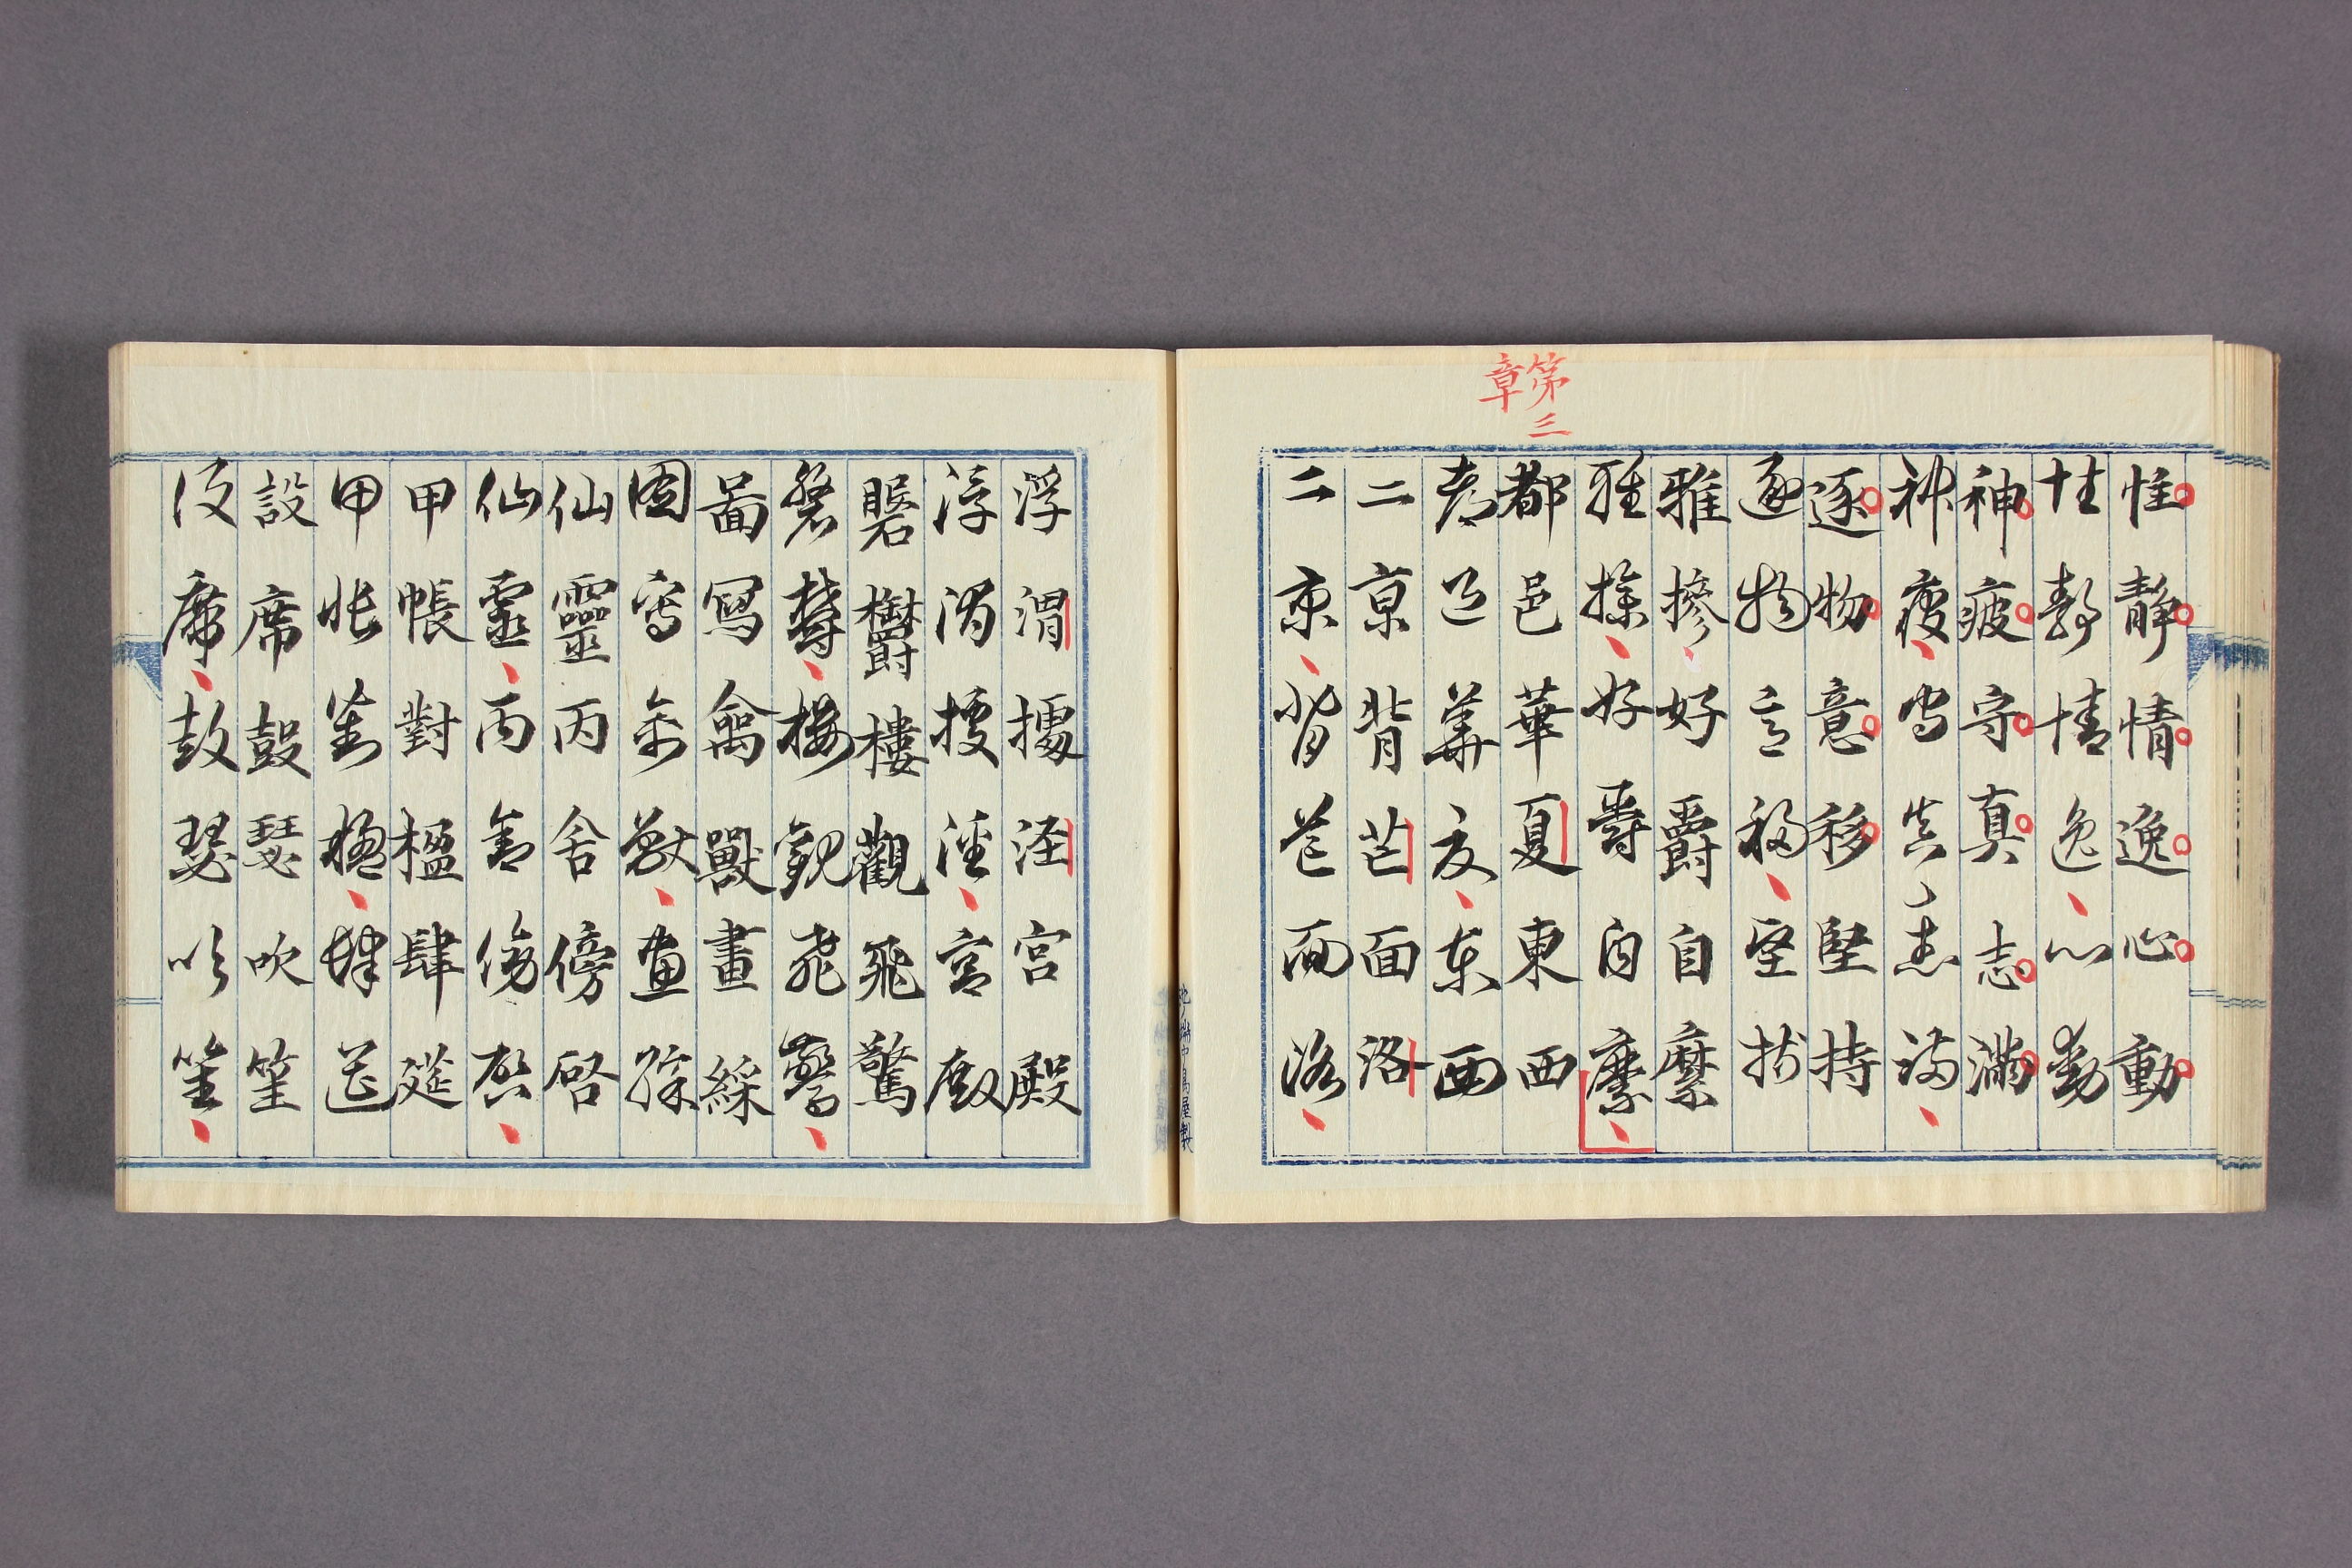 第三
章
性靜情逸心動
性靜情逸心動
神疲守真志滿
神疲守真志滿
逐物意移堅持
逐物意移堅持
雅操好爵自縻
雅操好爵自縻
都邑華夏東西
都邑華夏東西
二京背芒面洛
二京背芒面洛
浮渭據涇宮殿
浮渭據涇宮殿
磐鬱樓觀飛驚
磐鬱樓觀飛驚
圖寫禽獸畫綵
圖寫禽獸畫綵
仙靈丙舍傍啓
仙靈丙舍傍啓
甲帳對楹肆筵
甲帳對楹肆筵
設席鼓瑟吹笙
設席鼓瑟吹笙